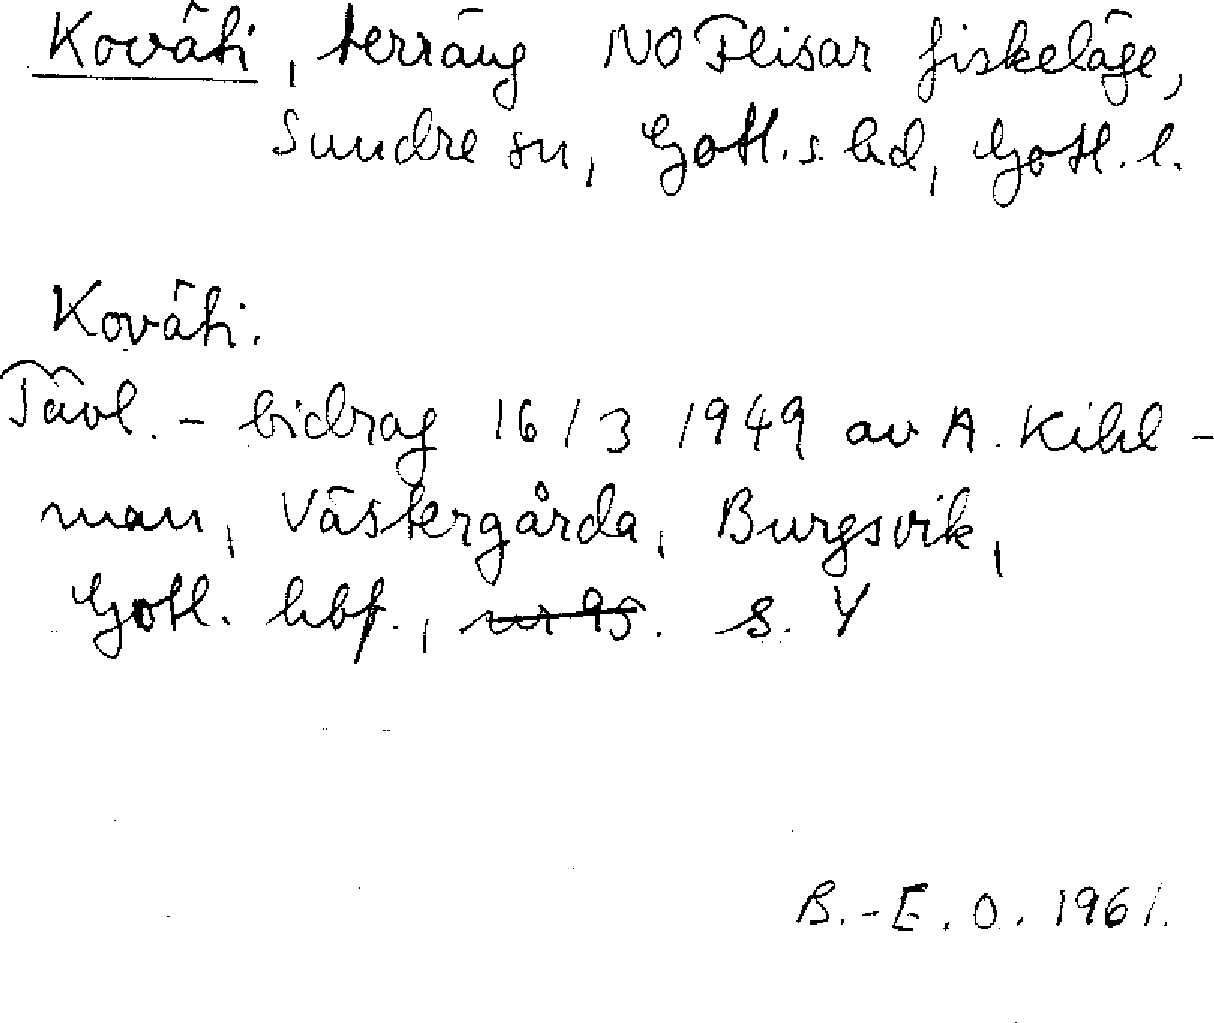 Kováti, terräng NO Flisar fiskeläge,
Sundre sn, Gotl. s. hd, Gotl. l.
Kováti.
Tävl. - bidrag 16/3 1949 av A. Kihl-
man, Västergårda, Burgsvik,
Gotl. hbf., s. 4
B.-E. O. 1961.